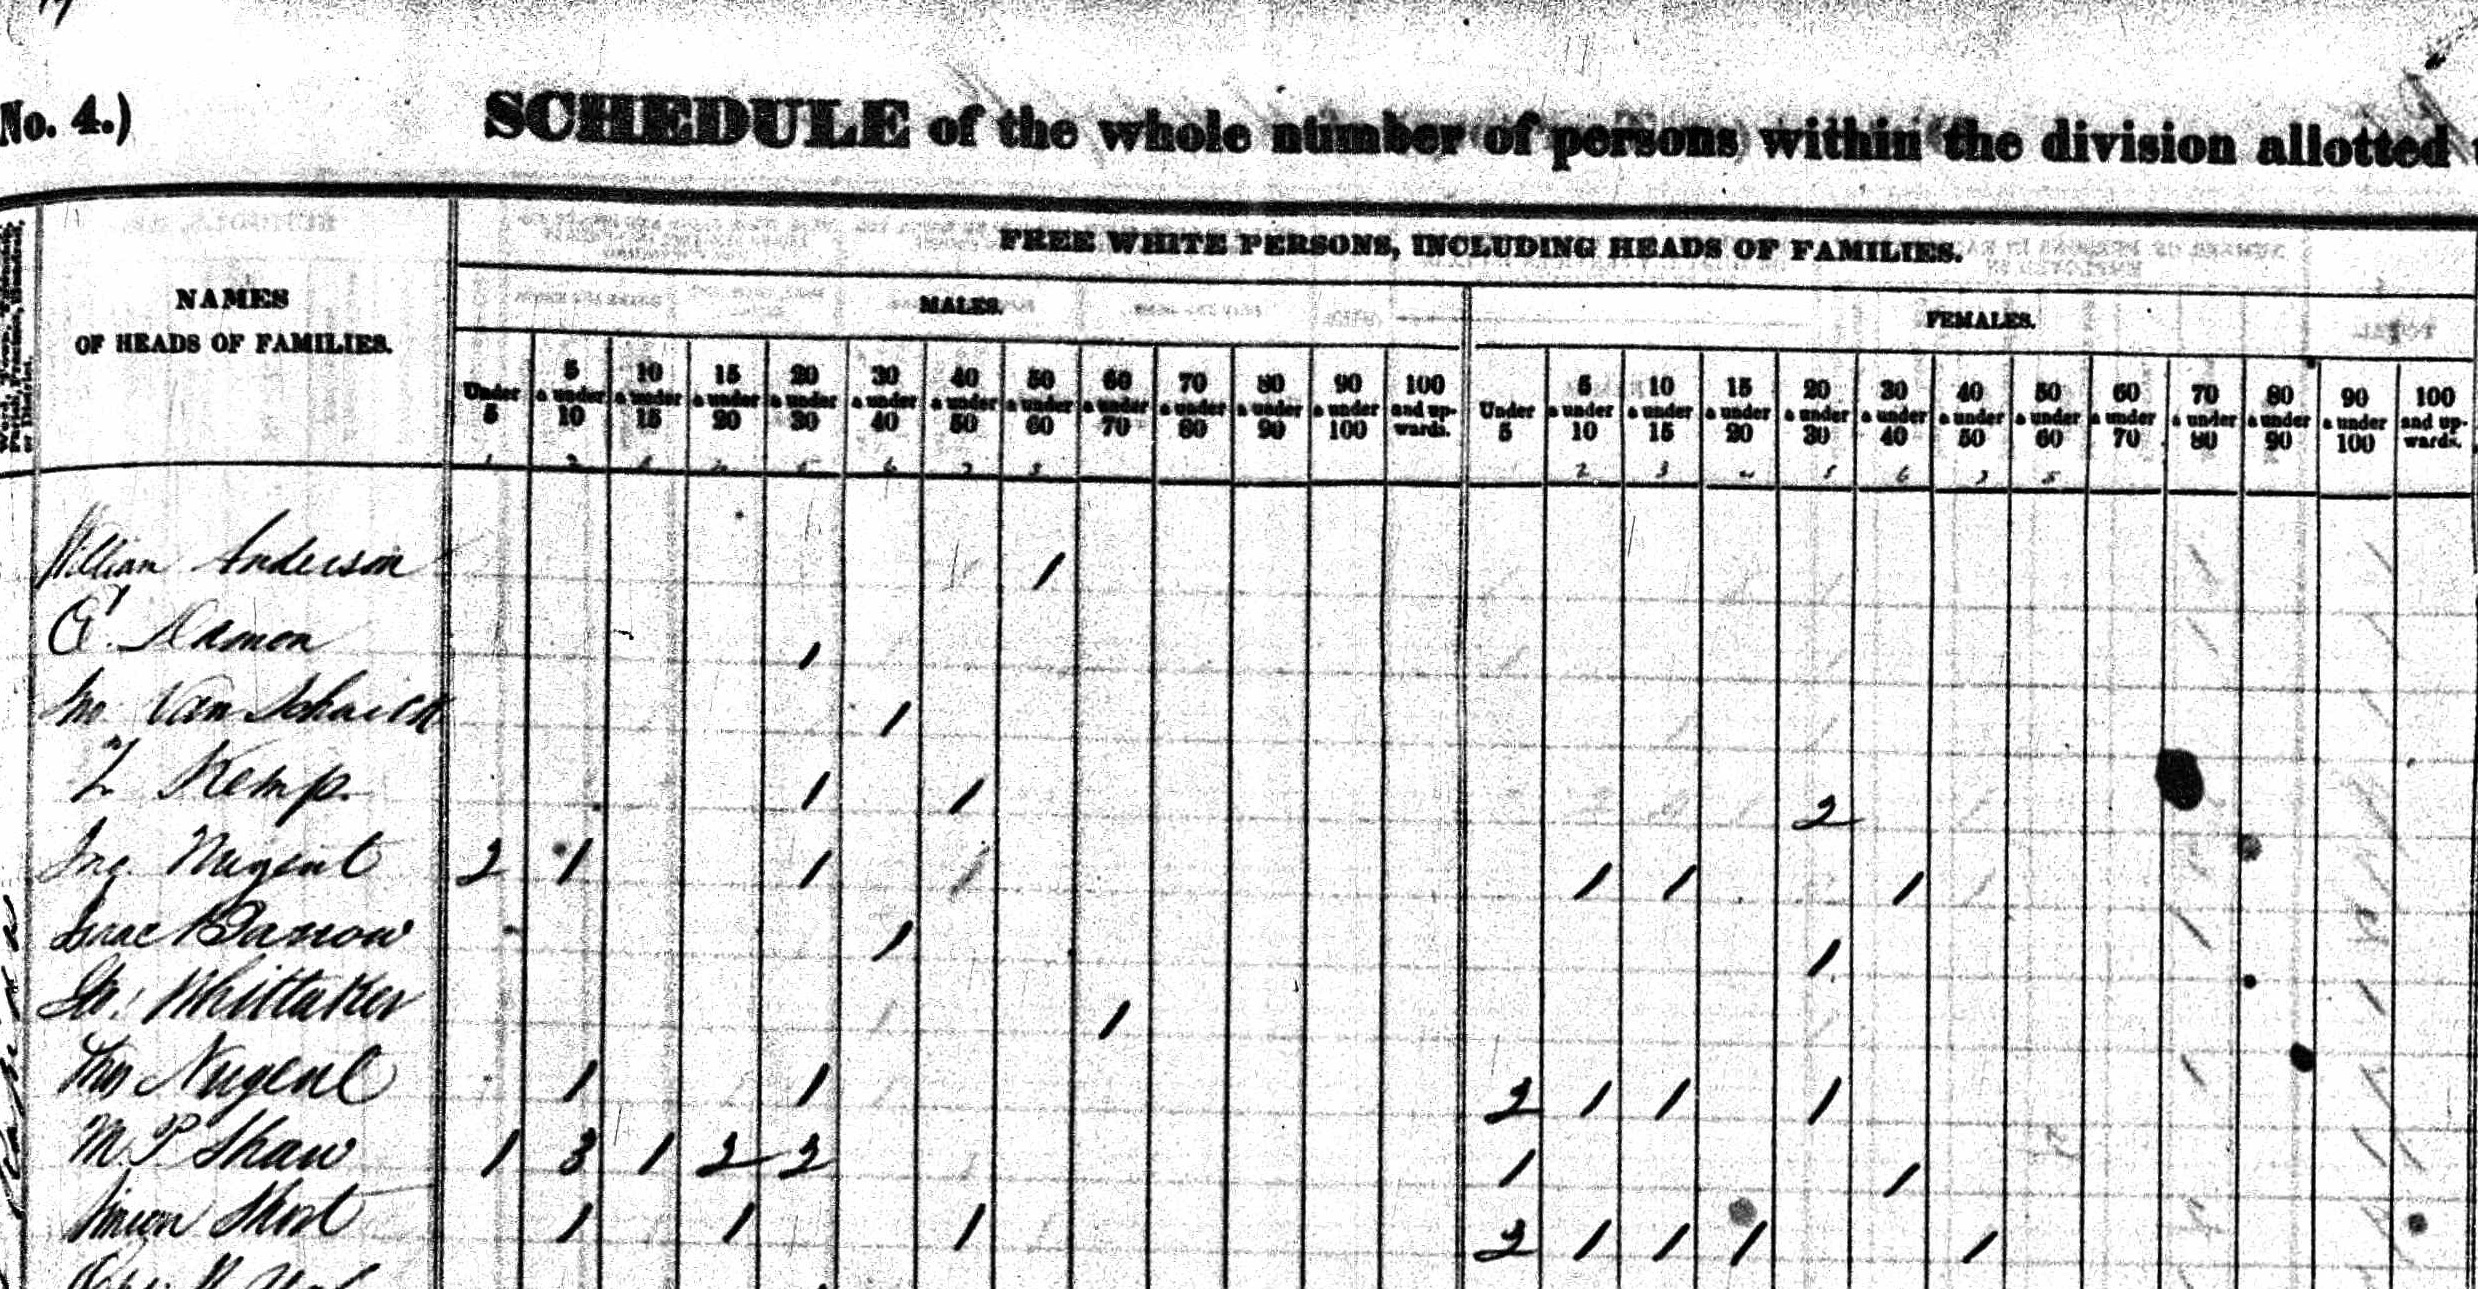 No. 4.) SCHEDULE of the whole number of persons within the division allotted
FREE WHITE PERSONS, INCLUDING HEADS OF FAMILIES.
NAMES
OF HEADS OF FAMILIES.
MALES. FEMALES.
Under 5 5 a under 10 10 a under 15 15 a under 20 20 a under 30 30 a under 40 40 a under 50 50 a under 60 60 a under 70 70 a under 80 80 a under 90 90 a under 100 100 and up-wards. Under 5 5 a under 10 10 a under 15 15 a under 20 20 a under 30 30 a under 40 40 a under 50 50 a under 60 60 a under 70 70 a under 80 80 a under 90 90 a under 100 100 and up-wards.
William Anderson 1
1
Van Schaick 1
Kemp. 1 1 2
Jno. Nugent 2 1 1 1 1 1
Isaac Barrow 1 1
Whittaker 1
Nugent 1 1 2 1 1 1
M. P. Shaw 1 3 1 2 2 1 1
Simeon Short 1 1 1 2 1 1 1 1